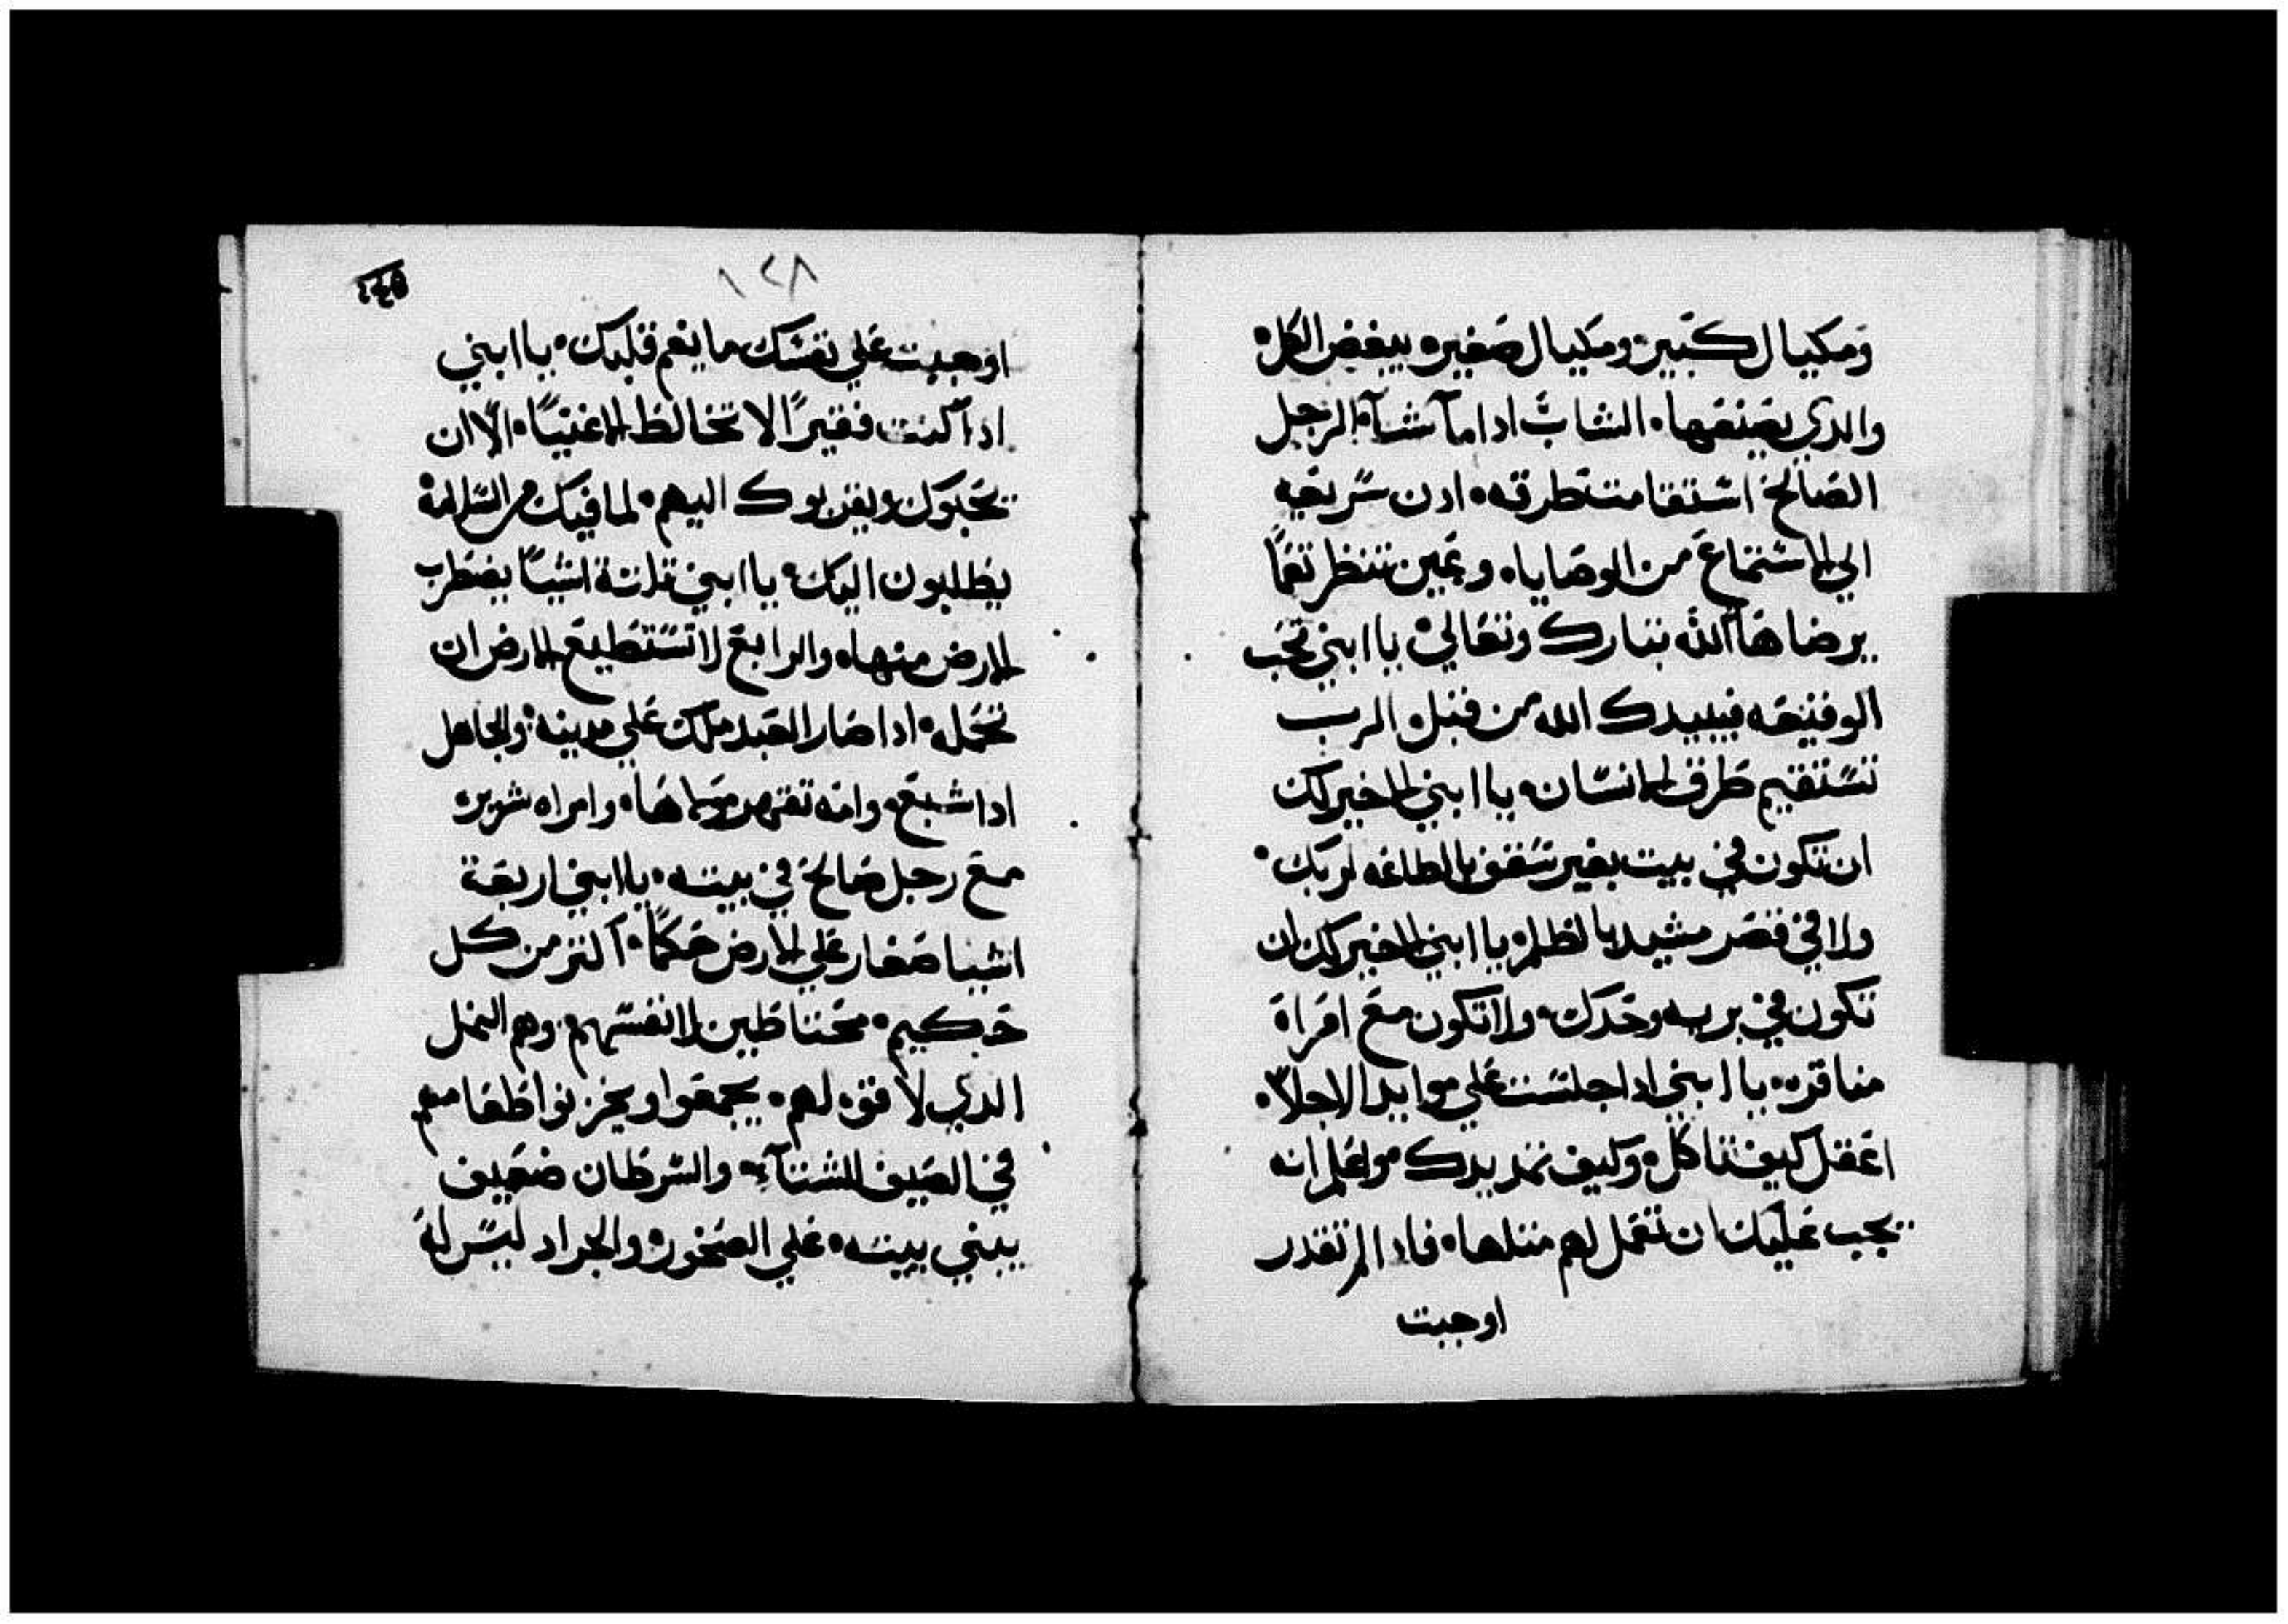 ومكيال كبير ومكيال صغير يبغض الكل
والدي يصنعها الشاب ادا ماشآء الرجل
الصالح اشتقامت طرقه ادن سريعه
الي الاستماع من الوصايا وعين تنظر نعما
يرضاها الله تبارك وتعالي يا ابني تحب
الوقيعه فيبيدك الله من قبل الرب
تستقيم طرق الانسان يا ابني الاخير لك
ان تكون في بيت بغير سقف بالطاعه لربك
ولا في قصر مشيد بالظلم يا ابني الاخير لك ان
تكون في بريه وحدك ولا تكون مع امراة
مناقره يا ابني ادا جلست علي موايد الاجلاء
اعقل كيف تاكل وكيف تمد يدك واعلم انه
يجب عليك ان تعمل لهم مثلها فادا لم تقدر
اوجبت
١٢٨
اوجبت علي نفسك ما يغم قلبك يا ابني
ادا كنت فقيرًا لا تخالط الاغنيا الا ان
يحبوك ويقربوك اليهم لما فيك من السلامة
يطلبون اليك يا ابني تلتة اشيا يضطرب
الارض منها والرابع لا تستطيع الارض ان
تحمله ادا صار العبد ملك علي مدينه والجاهل
ادا شبع وامه تقهر مولاها وامراه شريره
مع رجل صالح في بيته يا ابني اربعة
اشيا صغار علي الارض حكمًا اكتر من كل
حكيم محتاطين لانفسهم وهم النمل
الدي لا قوه لهم يجمعوا ويخزنوا طعامهم
في الصيف للشتآء والسرطان ضعيف
يبني بيته علي الصخور والجراد ليس له